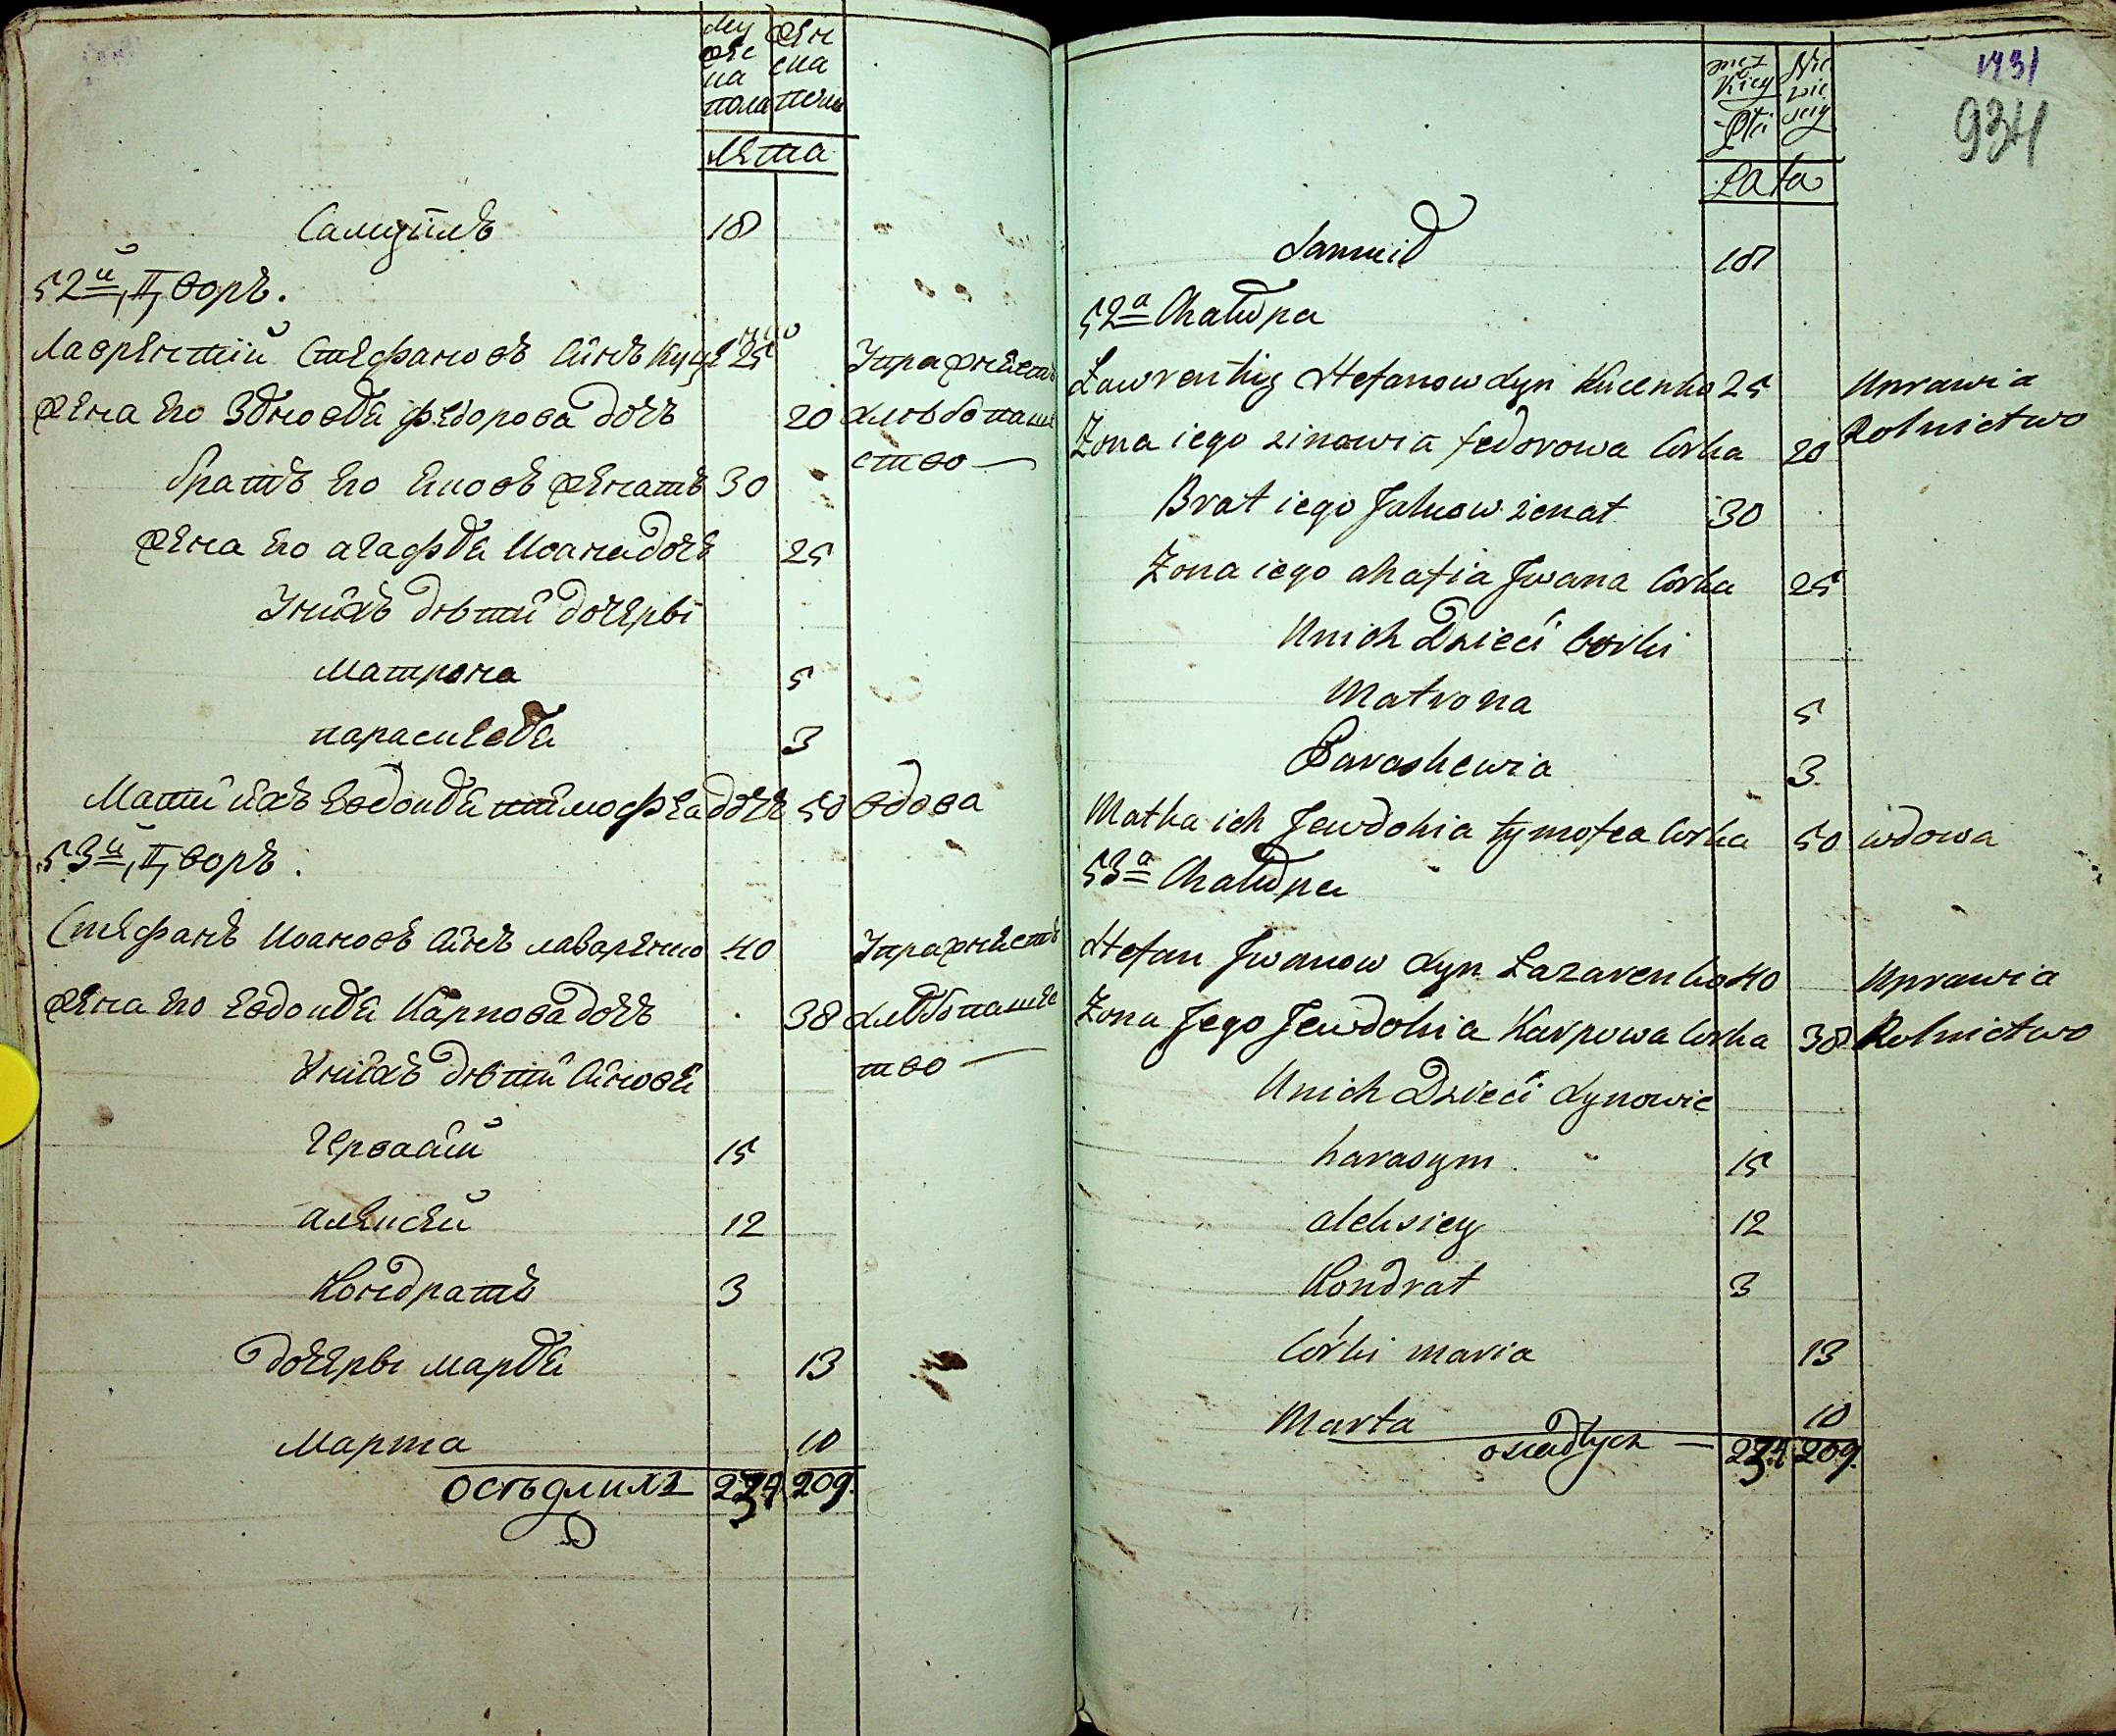 му жен
жес ска
ка
пола полы
лета
Самуилъ 18
52й Дворъ.
Лаврентий Стефановъ сынъ Куце 25 Упражнѣетъ
жена его Зѣновѣя федорова дочъ 20 хлѣбопаше
ство
братъ его Яковъ женатъ 30
жена его агафѣя Иоана дочъ 25
У нихъ дѣти дочеры
матрона 5
параскевѣя 3
Мати ихъ Евдокѣя тимофеа дочъ 50 вдова
53й Дворъ.
Стефанъ Иоановъ сынъ лазаренко 40 Упражнѣетъ
жена его Евдокѣя Карпова дочъ 38 хлѣбопашес
тво
У нихъ дѣти сынови
Герваси́й 15
алексей 12
Кондратъ 3
дочеры марѣя 13
Марта 10
осѣдлихъ 234 209.
1731
934
męz Nie
kiey wie
Płci sciy
Lata
Samuil 18
52a Chałupa
Lawrentiy Stefanow Syn Kucenko 25 Uprawia
Zona iego zinowia fedorowa Corka 20 Rolnictwo
Brat iego Jakow żenat 30
Zona iego ahafia Jwana Corka 25
Unich Dzieci Corki
Matrona 5
Paraskewia 3
Matka ich Jewdokia tymofea Corka 50 wdowa
53a Chałupa
Stefan Jwanow Syn Lazarenko 40 Uprawia
Zona Jego Jewdokia Karpowa Corka 38 Rolnictwo
Unich Dzieci Synowie
harasym 15
aleksiey 12
Kondrat 3
Córki maria 13
Marta 10
osiadłych 234 209.